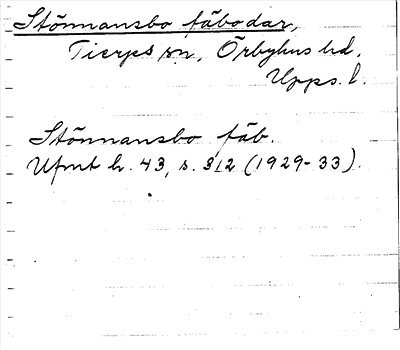 Stönnansbo fäbodar,
Tierps sn, Örbyhus hd,
Upps. l.
Stönnansbo fäb.
Ufmt h. 43, s. 312 (1929-33).